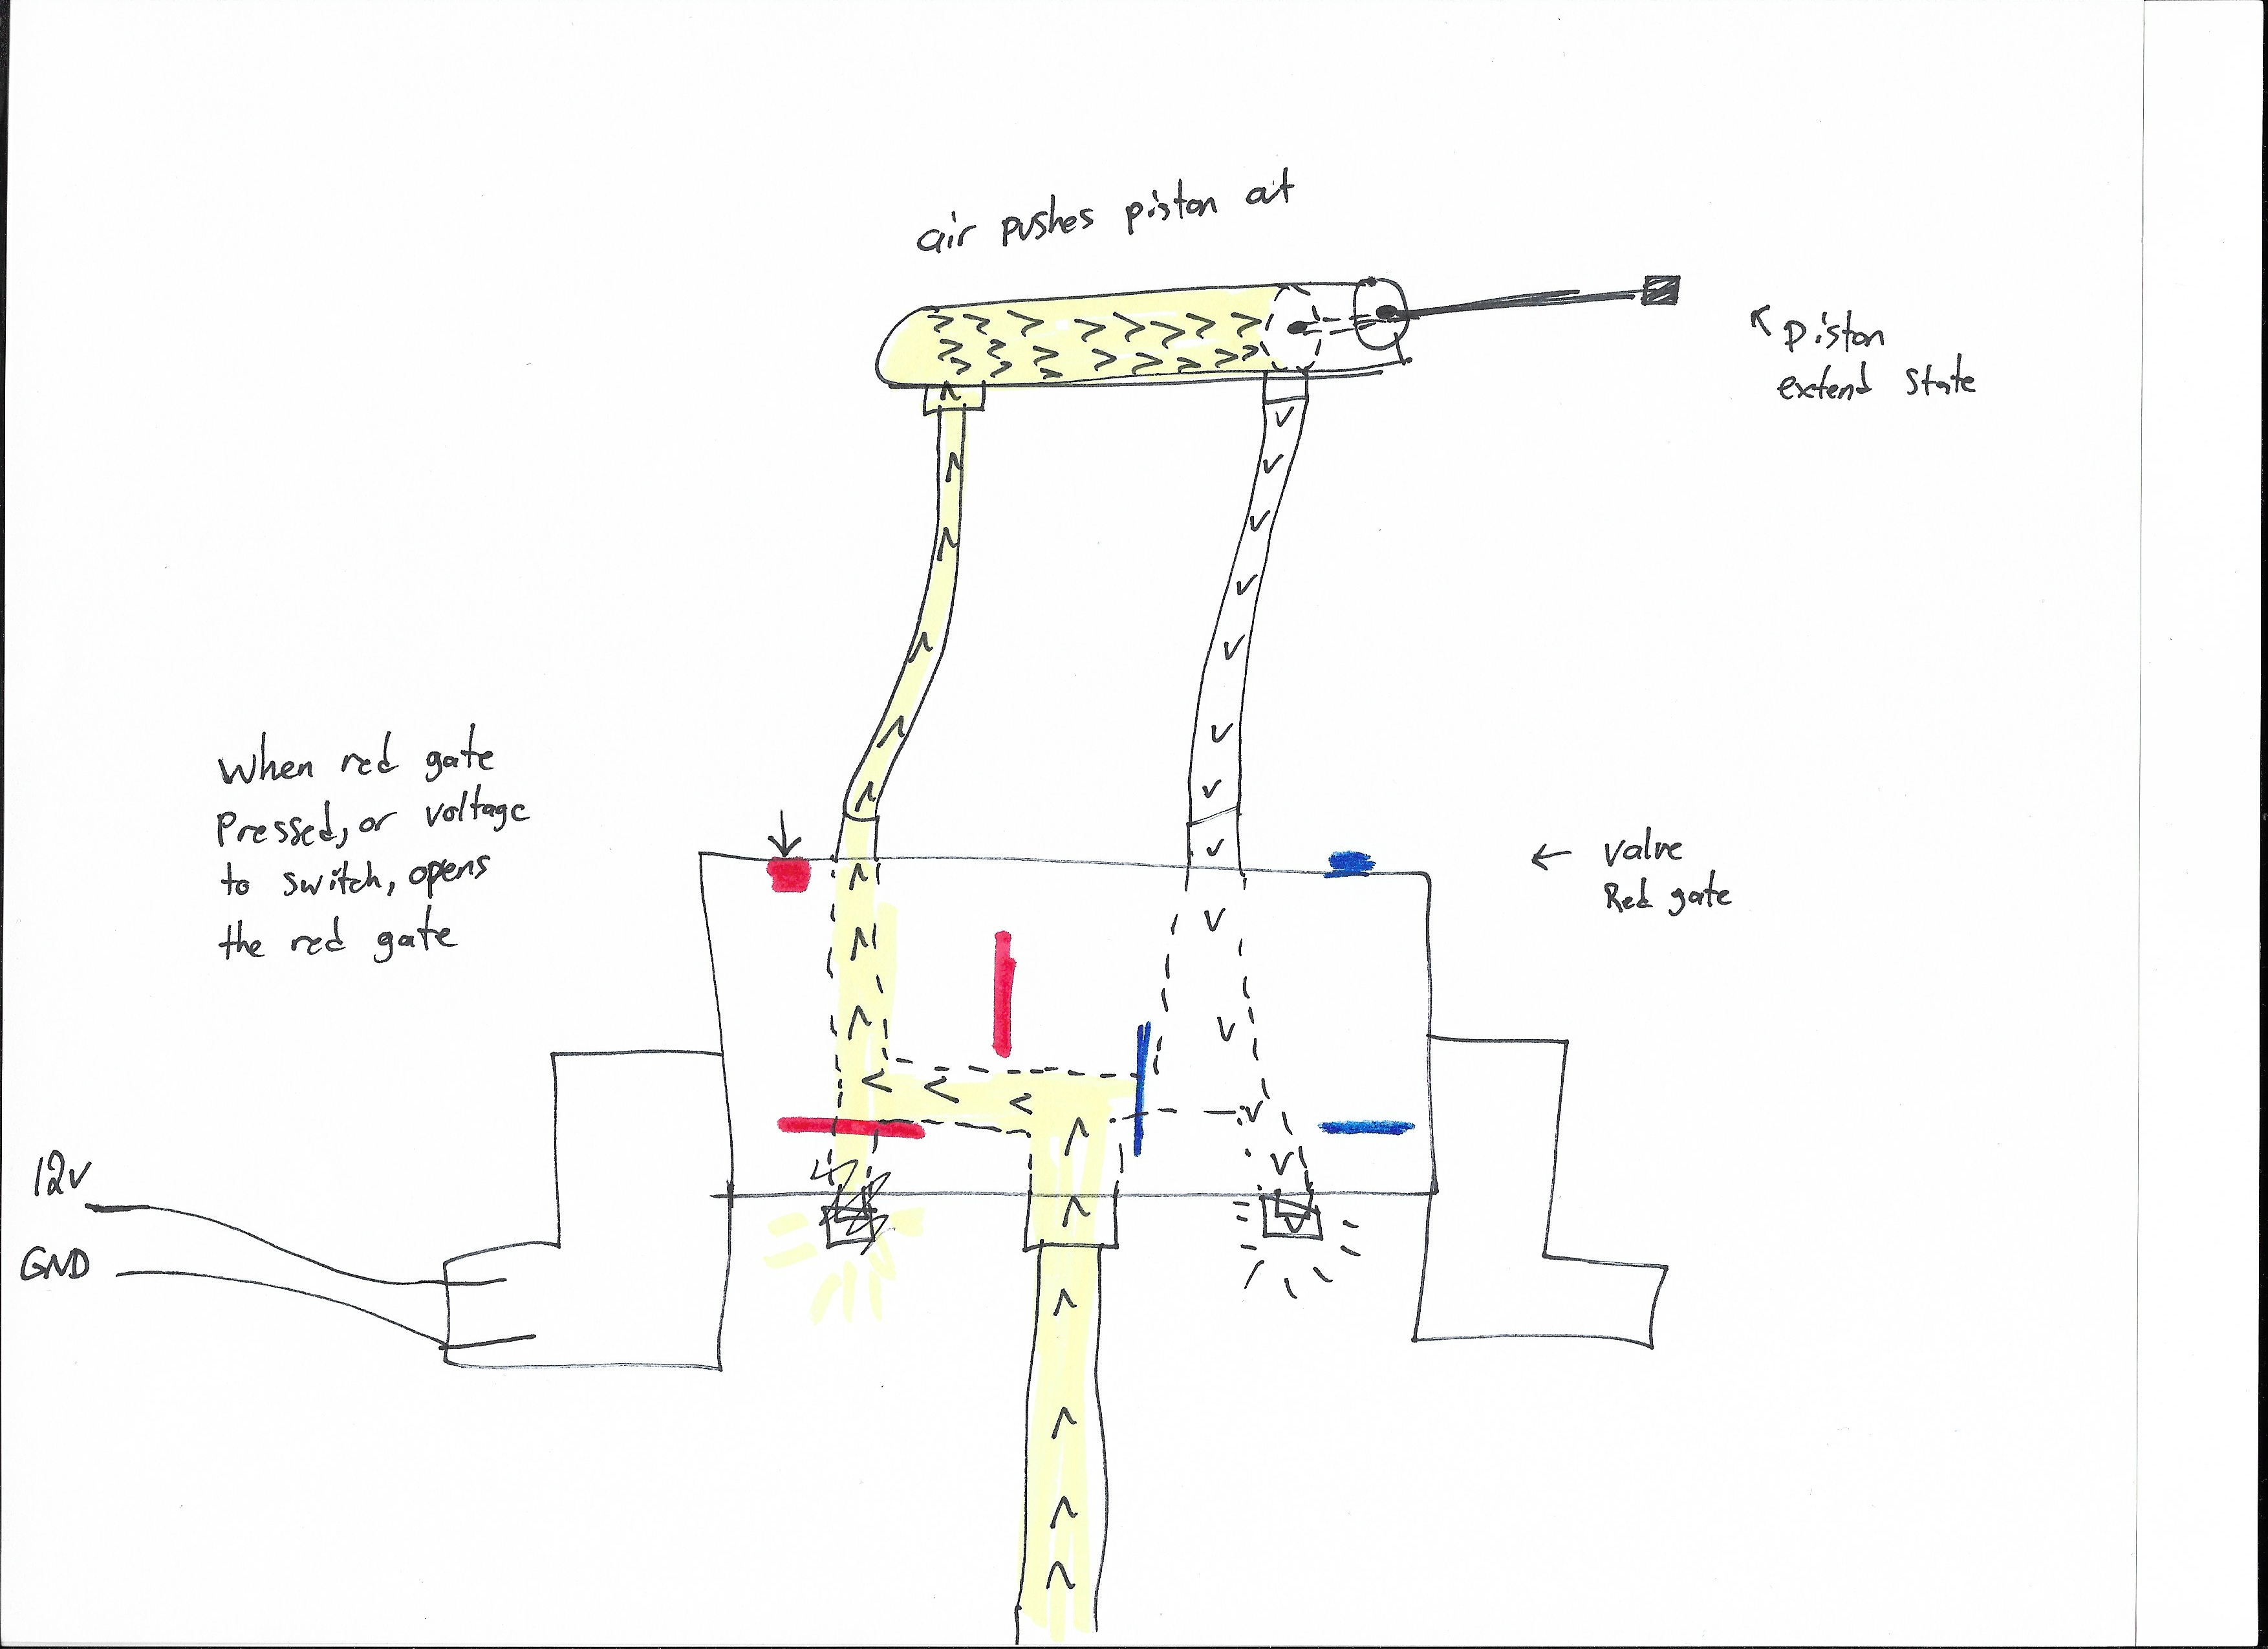 air pushes piston out
piston
extend state
When red gate
Pressed, or voltage
to switch, opens
the red gate
valve
Red gate
12v
GND